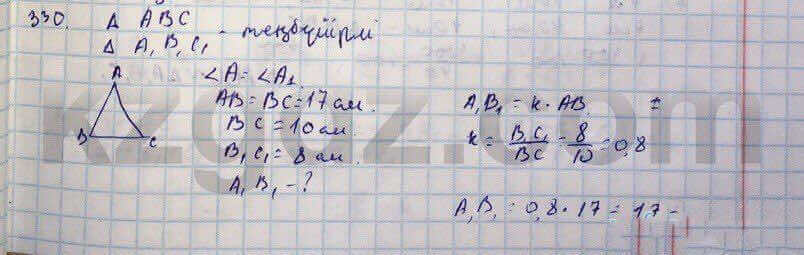 330. Δ ABC
Δ A₁B₁C₁ - теңбүйірлі
∠A = ∠A₁.
AB = BC = 17 см.
BC = 10 см.
B₁C₁ = 8 см.
A₁B₁ - ?
A
B
C
A₁B₁ = k · AB.
k = B₁C₁/BC = 8/10 = 0,8
A₁B₁ = 0,8 · 17 = 17 -
kzgdz.com